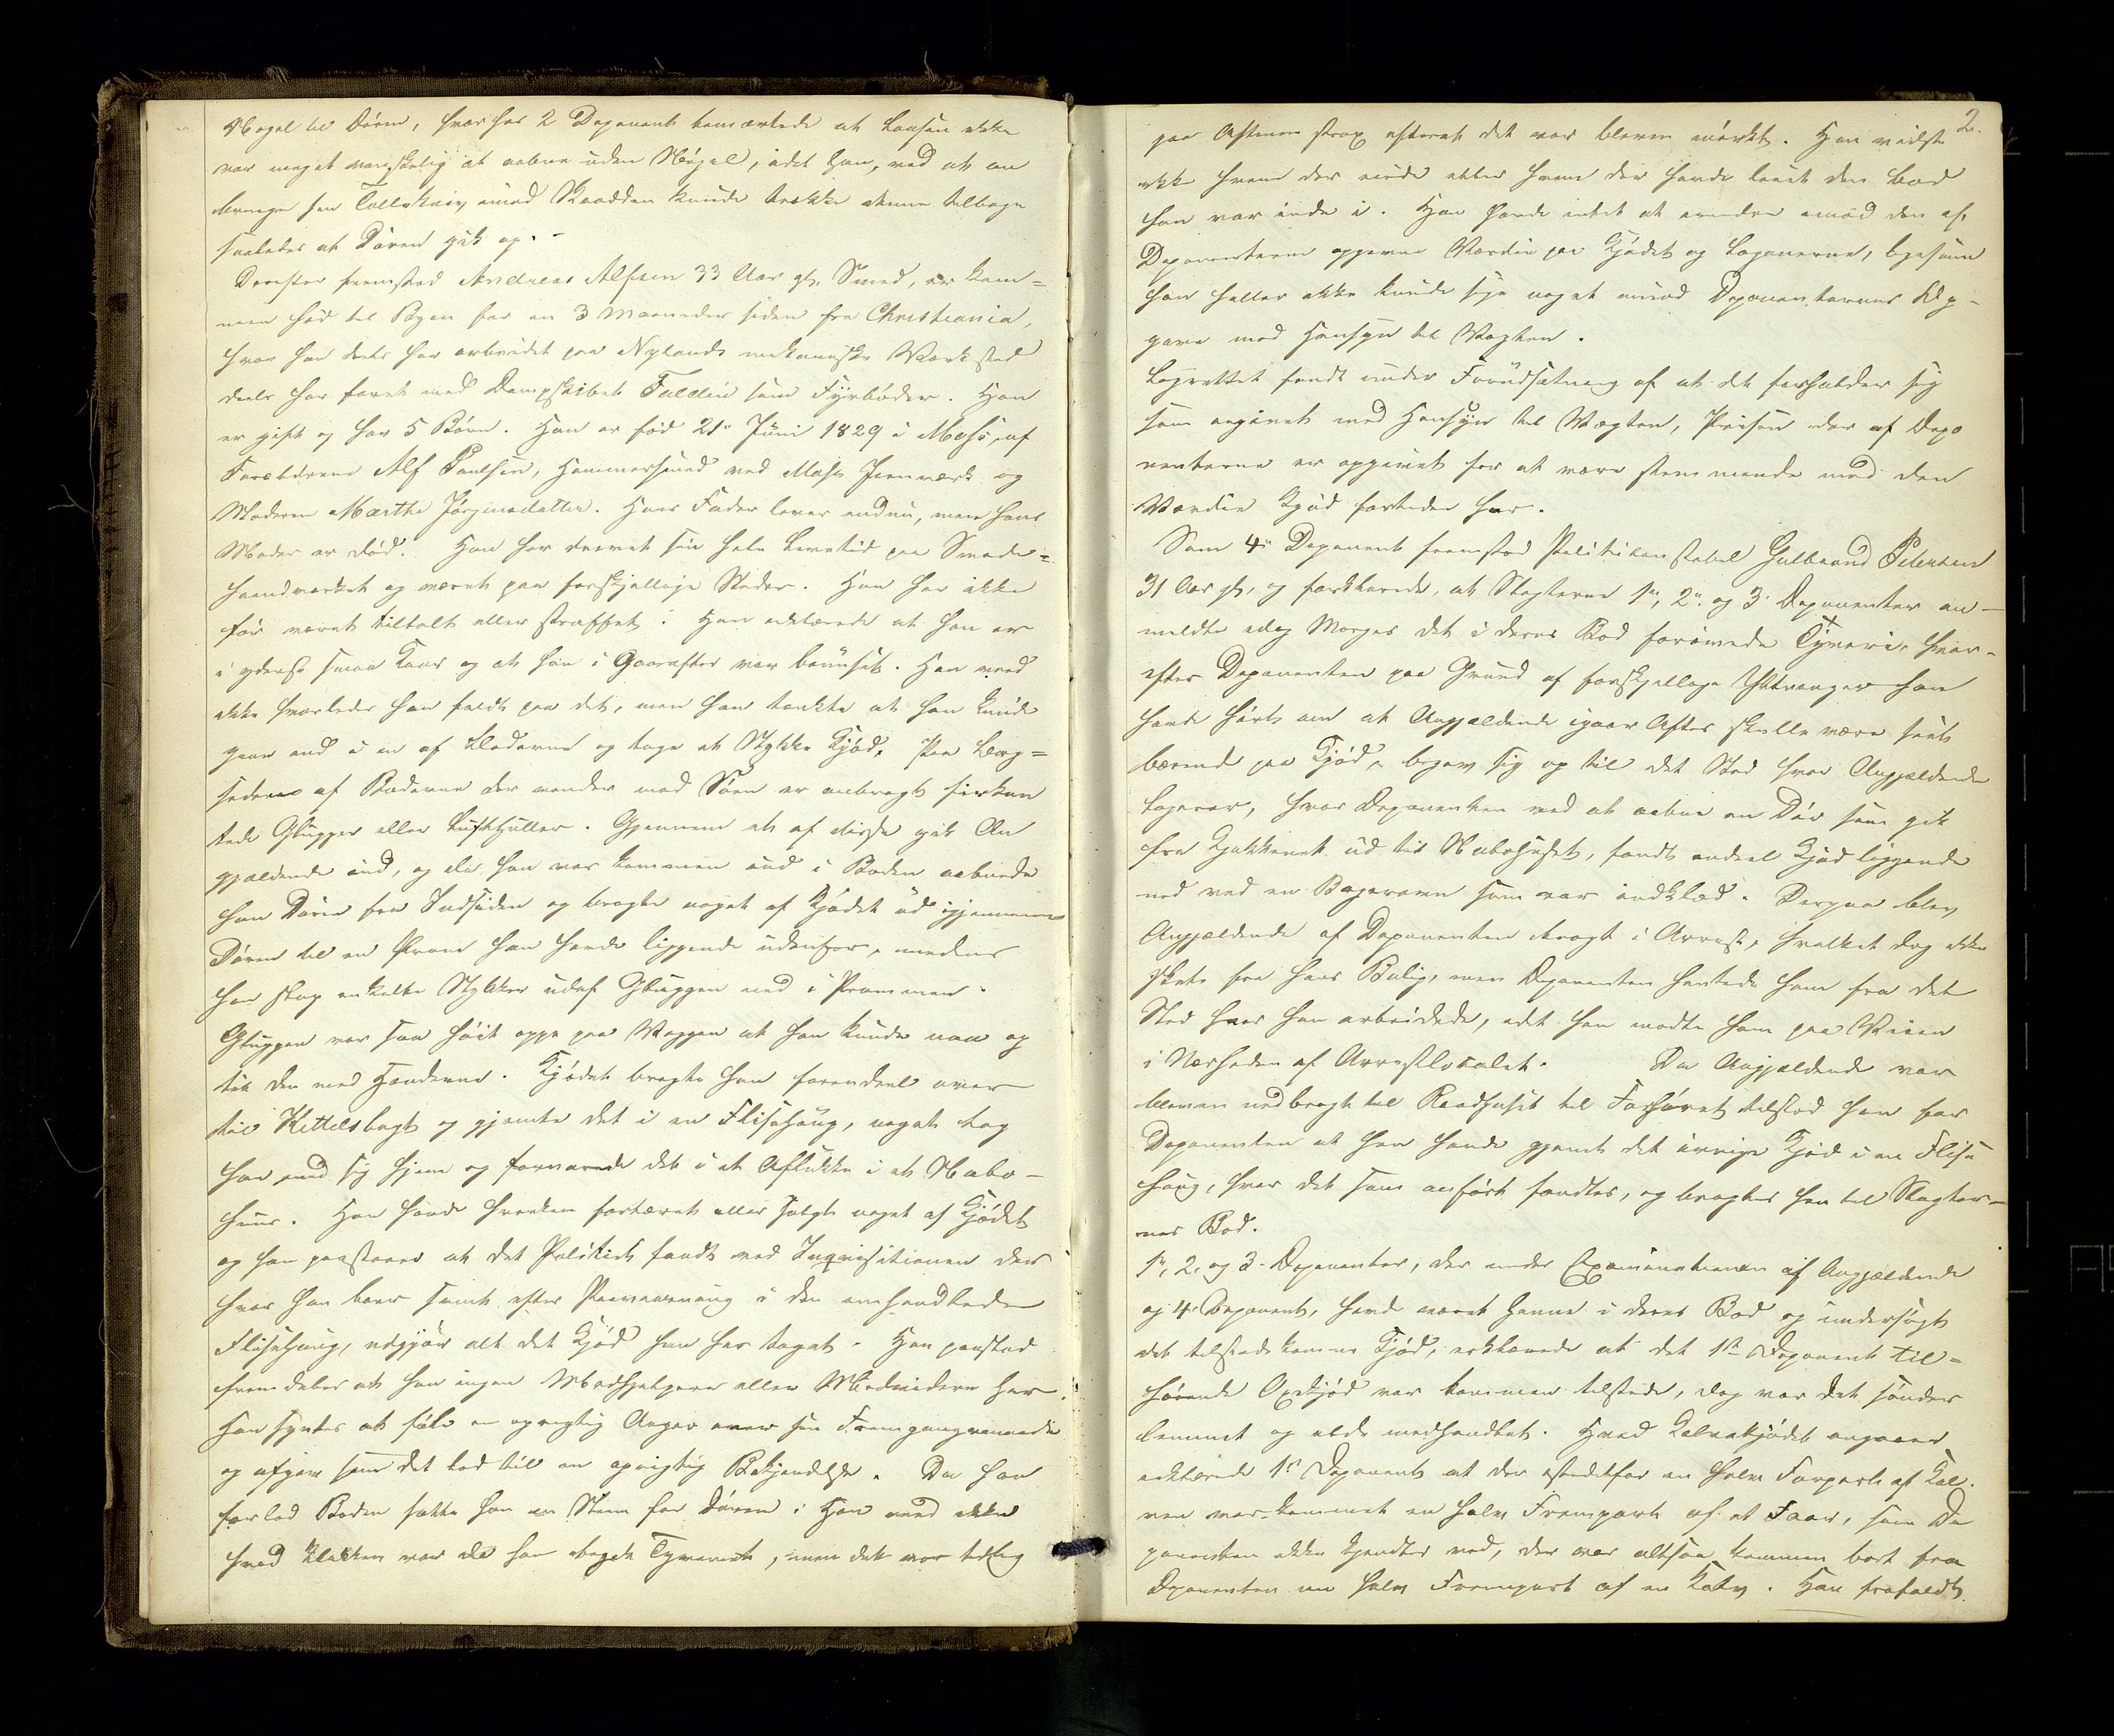 Nøgel til Døren, hvorhos 2 Deponent bemærkede at Laasen ikke
var meget vanskelig at aabne uden Nøgel, idet han, ved at an
bringe sin Tollekniv imod Raadden kunde trække denne tilbage
saaledes at Døren gik op. -
Derefter fremstod Andreas Alfsen 33 Aar gl. Smed, er kom=
men hid til Byen for en 3 Maaneder siden fra Christiania,
hvor han deels har arbeidet paa Nylands mekaniske Værksted
deels har faret med Dampskibet Faldin som Fyrbøder. Han
er gift og har 5 Børn. Han er fød 21de Juni 1829 i Moss, af
Forældrene Alf Paulsen, Hammersmed ved Moss Jernværk og
Moderen Marthe Jørgensdatter. Hans Fader lever endnu, men hans
Moder er død. Han har drevet sin hele Levetid paa Smede=
haandværket og været paa forskjellige Steder. Han har ikke
før været tiltalt eller straffet. Han erklærede at han er
i yderst smaa Kaar og at han i Gaaraftes var beruset. Han veed
ikke hvorledes han faldt paa det, men han tænkte at han kunde
gaae ind i en af Boderne og tage et Stykke Kjød. Paa Lang=
siderne af Boderne der vender mod Søen er anbragt firkan
tede Glugger eller Lufthuller. Gjennem et af disse gik An
gjældende ind, og da han var kommen ind i Boden aabnede
han Døren fra Indsiden og bragte noget af Kjødet ud igjennem
Døren til en Pram han havde liggende udenfor, medens
han stak enkelte Stykker ud af Gluggen ned i Prammen.
Gluggen var saa høit oppe paa Væggen at han kunde naa op
til den med Hænderne. Kjødet bragte han forendeel over
til Kittelsbugt og gjemte det i en Flisehaug, noget tog
han med sig hjem og forvarede det i et Aflukke i et Nabo-
huus. Han havde hverken fortæret eller solgt noget af Kjødet
og han paastaaer at det Politiet fandt ved Inqvisitionen der
hvor han boer samt efter Paaviisning i den omhandlede
Flisehaug, udgjør alt det Kjød han har taget. Han paastod
fremdeles at han ingen Medhjelpere eller Medvidere har.
Han syntes at føle en oprigtig Anger over sin Fremgangsmaade
og afgav som det lod til en oprigtig Bekjendelse. Da han
forlod Boden satte han en Steen for Døren. Han veed ikke
hvad Klokken var da han begik Tyveriet, men det var tidlig
2.
paa Aftenen strax efterat det var bleven mørkt. Han vidste
ikke hvem der eiede eller hvem der havde leiet den Bod
han var inde i. Han havde intet at erindre imod den af
Deponenterne opgivne Værdie paa Kjødet og Logerne, ligesom
han heller ikke kunde sige noget imod Deponenternes Op-
gave med Hensyn til Vægten.
Lagrettet fandt under Forudsætning af at det forholder sig
som angivet med Hensyn til Vægten, Prisen der af Depo
nenterne er opgivet for at være stemmende med den
Værdie Kjød fortiden har.
Som 4de Deponent fremstod Politikonstabel Gulbrand Petersen
31 Aar gl, og forklarede, at Slagterne 1ste, 2den og 3die Deponenter an-
meldte idag Morges det i deres Bod forøvede Tyveri, hvor-
efter Deponenten paa Grund af forskjellige Yttringer han
havde hørt om at Angjældende igaar Aftes skulle være seet
bærende paa Kjød, begav sig op til det Sted hvor Angjældende
logerer, hvor Deponenten ved at aabne en Dør som gik
fra Kjøkkenet ud til Nabohuset, fandt endeel Kjød liggende
ned ved en Bagerovn som var indklæd. Derpaa blev
Angjældende af Deponenten bragt i Arrest, hvilket dog ikke
skete fra hans Bolig, men Deponenten hentede ham fra det
Sted hvor han arbeidede, idet han mødte ham paa Veien
i Nærheden af Arrestlokalet. Da Angjældende var
bleven nedbragt til Raadhuset til Forhøret tilstod han for
Deponenten at han havde gjemt det øvrige Kjød i en Flise
haug, hvor det som anført fandtes, og bragtes hen til Slagter-
nes Bod.
1ste, 2den og 3die Deponenter, der under Examinationen af Angjældende
og 4de Deponent, havde været henne i deres Bod og undersøgt
det tilstedekomne Kjød, erklærede at det 1ste Deponent til=
hørende Oxekjød var kommen tilstede, dog var det sønder
lemmet og ilde medhandlet. Hvad Kalvekjødet angaaer
erklærede 1ste Deponent at der istedetfor en halv Forpart af Kal
ven var kommet en halv Frempart af et Faar, som De
ponenten ikke kjendtes ved, der var altsaa kommen bort fra
Deponenten en halv Frempart af en Kalv. Han frafaldt